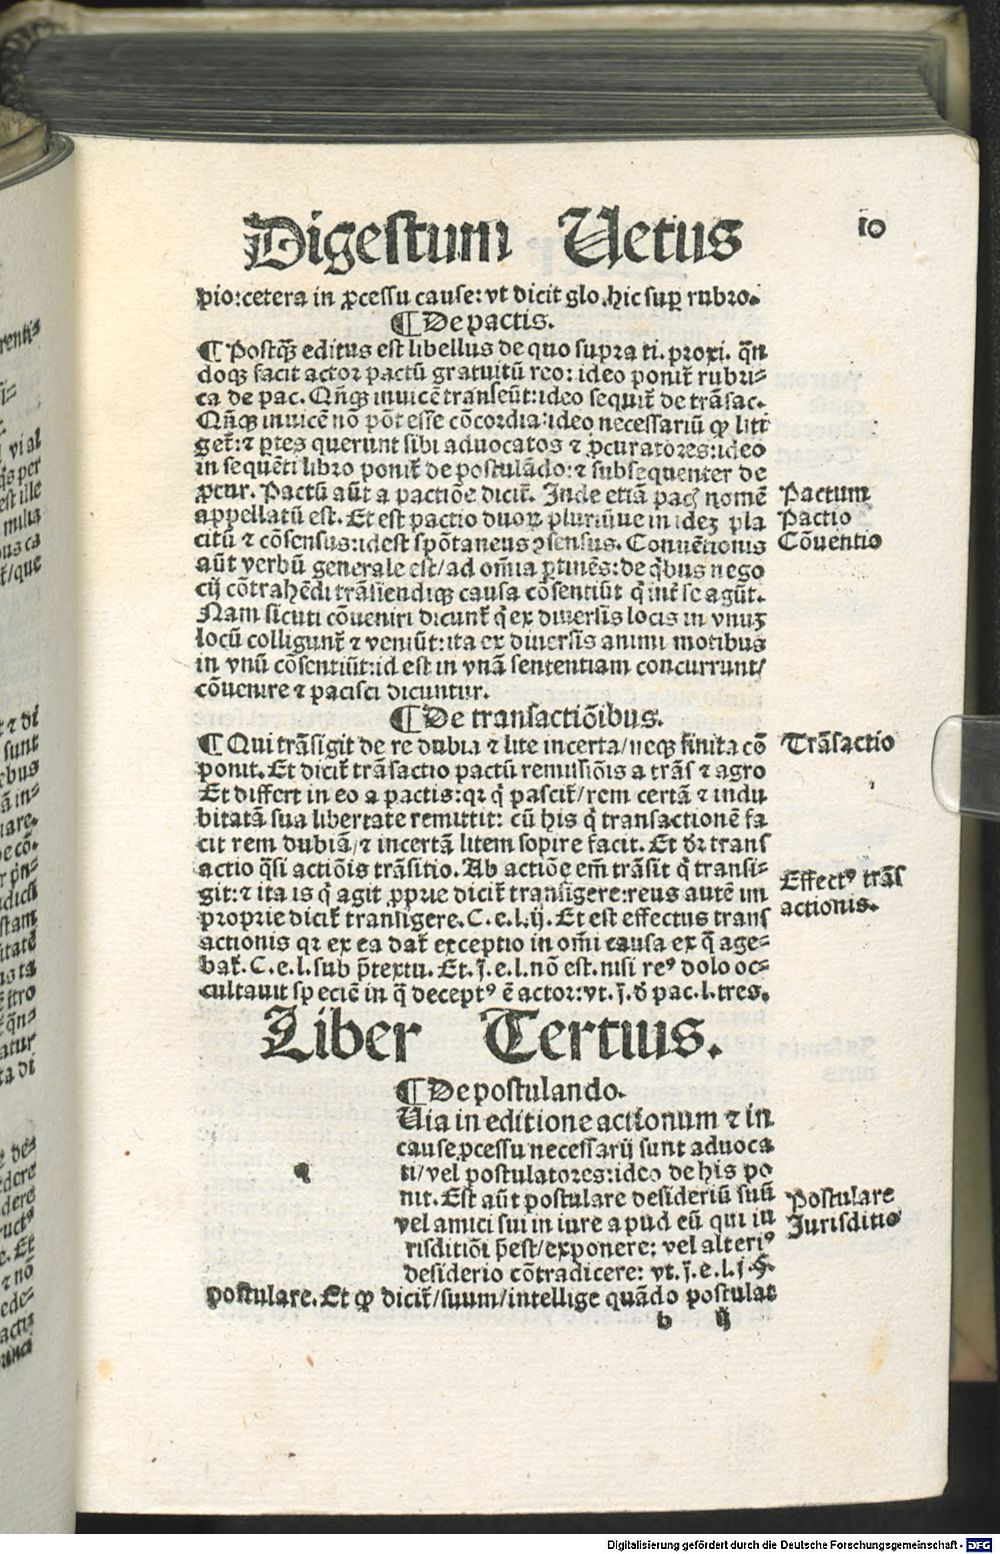 Digestum Uetus
10
pio:cetera in ꝓcessu cause: vt dicit glo. hic suꝑ rubro.
¶ De pactis.
¶ Postꝙ̃ editus est libellus de quo supra ti. proxi. qñ
doqꝫ facit actor pactũ gratuitũ reo: ideo ponit̃ rubri-
ca de pac. Qñqꝫ inuicẽ transeũt: ideo sequit̃ de trãsac.
Qñqꝫ inuicẽ nõ põt esse cõcordia: ideo necessariũ ꝙ liti
get̃: ⁊ ptes querunt sibi aduocatos ⁊ ꝓcuratores: ideo
in sequẽti libro ponit̃ de postulãdo: ⁊ subsequenter de
ꝓcur. Pactũ aũt a pactiõe dicit̃. Inde etiã pac̨ nomẽ
appellatũ est. Et est pactio duoꝝ pluriũue in idẽ pla
citũ ⁊ cõsensus: idest spõtaneus ꝯsensus. Conuẽtionis
aũt verbũ generale est/ad om̃ia ꝑtinẽs: de q̃bus nego
cij cõtrahẽdi trãsiendiqꝫ causa cõsentiũt q̃ int̃ se agũt.
Nam sicuti cõueniri dicunt̃ q̃ ex diuersis locis in vnuꝫ
locũ colligunt̃ ⁊ veniũt: ita ex diuersis animi motibus
in vnũ cõsentiũt: id est in vnã sententiam concurrunt/
cõuenire ⁊ pacisci dicuntur.
¶ De transactiõibus.
¶ Qui trãsigit de re dubia ⁊ lite incerta/neqꝫ finita cõ
ponit. Et dicit̃ trãsactio pactũ remissiõis a trãs ⁊ agro
Et differt in eo a pactis: qꝛ q̃ pascit̃/rem certã ⁊ indu
bitatã sua libertate remittit: cũ his q̃ transactionẽ fa
cit rem dubiã/⁊ incertã litem sopire facit. Et dr̃ trans
actio q̃si actiõis trãsitio. Ab actiõe em̃ trãsit q̃ transi-
git: ⁊ ita is q̃ agit ꝓprie dicit̃ transigere: reus autẽ im
proprie dicit̃ transigere. C. e. l. ij. Et est effectus trans
actionis qꝛ ex ea dat̃ exceptio in om̃i causa ex q̃ age-
bat̃. C. e. l. sub p̃textu. Et. j. e. l. nõ est. nisi reꝰ dolo oc-
cultauit speciẽ in q̃ deceptꝰ ẽ actor: vt. j. d̃ pac. l. tres.
Pactum
Pactio
Cõuentio
Trãsactio
Effectꝰ trãs
actionis.
Liber Tertius.
¶ De postulando.
Uia in editione actionum ⁊ in
cause ꝓcessu necessarij sunt aduoca
ti/vel postulatores: ideo de his po
nit. Est aũt postulare desideriũ suũ
vel amici sui in iure apud eũ qui iu
risditiõi p̃est/exponere: vel alteriꝰ
desiderio cõtradicere: vt. j. e. l. j. §.
postulare. Et ꝙ dicit̃/suum/intellige quãdo postulat
Postulare
Jurisditio
b ij
Digitalisierung gefördert durch die Deutsche Forschungsgemeinschaft - DFG